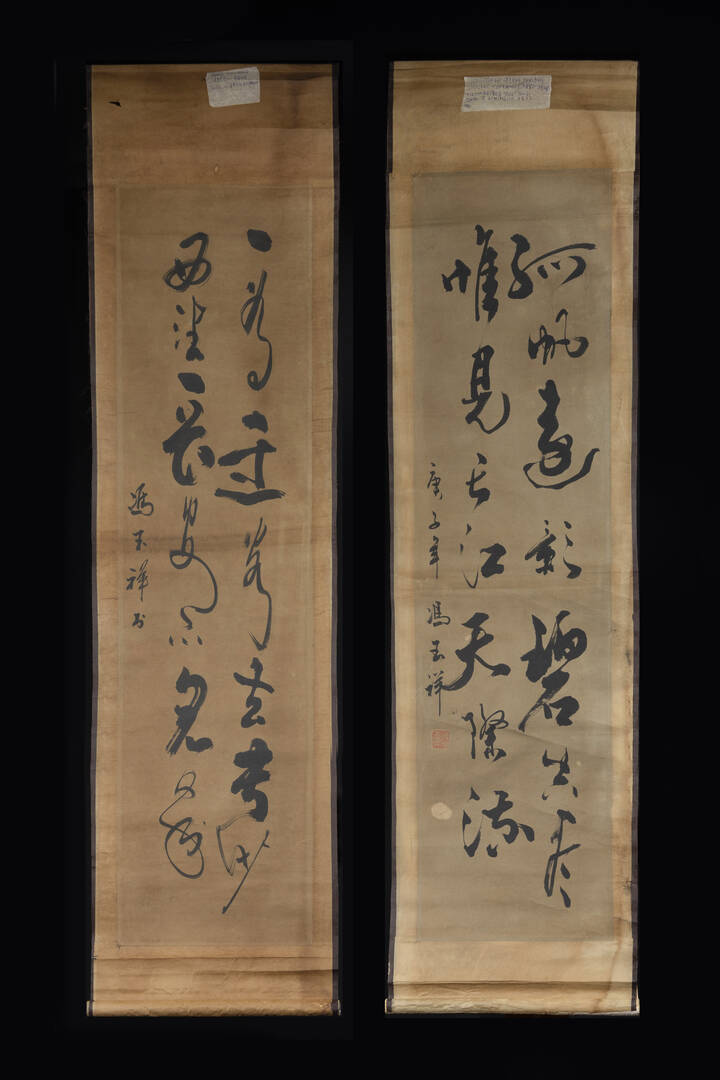 孤帆遠影碧空盡
惟見長江天際流
庚子年 馮玉祥
一為遷客去長沙
西望長安不見家
馮玉祥书